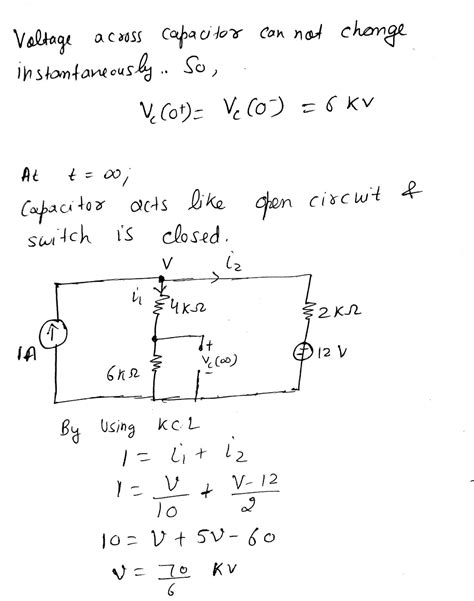 Voltage across capacitor can not change
instantaneously.. So,
Vc(0+) = Vc(0-) = 6 KV
At t = ∞;
Capacitor acts like open circuit &
switch is closed.
V
i2
i1
4kΩ
2kΩ
1A
+
Vc(∞)
-
12 V
6kΩ
By Using KCL
1 = i1 + i2
1 = V/10 + V-12/2
10 = V + 5V - 60
V = 70/6 KV